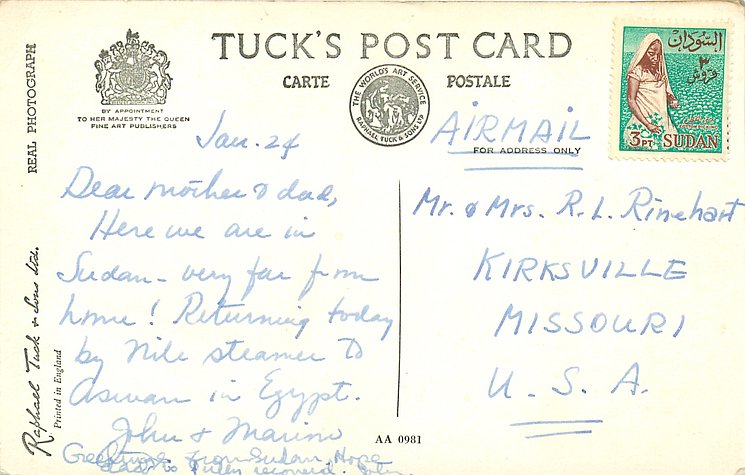 TUCK'S POST CARD
CARTE POSTALE
REAL PHOTOGRAPH
BY APPOINTMENT
TO HER MAJESTY THE QUEEN
FINE ART PUBLISHERS
THE WORLD'S ART SERVICE
RAPHAEL TUCK & SONS LTD
السودان
٣
قروش
3 PT. SUDAN
AIRMAIL
FOR ADDRESS ONLY
Jan. 24
Dear mother & dad,
Here we are in
Sudan - very far from
home! Returning today
by Nile steamer to
Aswan in Egypt.
John & Marino
Greetings from Sudan, Hope
recovered.
Mr. & Mrs. R. L. Rinehart
KIRKSVILLE
MISSOURI
U. S. A.
Raphael Tuck & Sons Ltd.
Printed in England
AA 0981